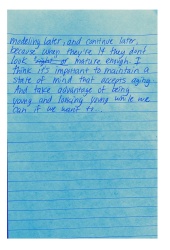 modeling later, and continue later,
because when they're 14 they don't
look mature enough. I
think it's important to maintain a
state of mind that accepts aging.
And take advantage of being
young and looking young while we
can if we want to...